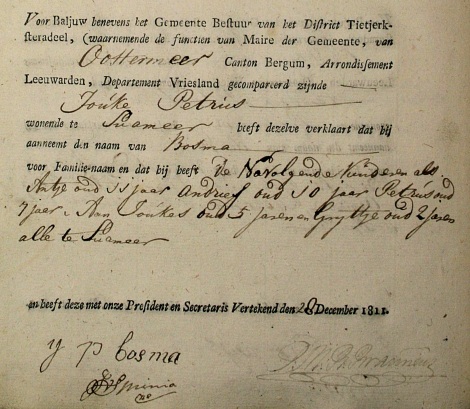 Voor Baljuw benevens het Gemeente Bestuur van het District Tietjerk-
steradeel, (waarnemende de functien van Maire der Gemeente, van
Oostermeer Canton Bergum, Arrondissement
Leeuwarden, Departement Vriesland gecompareerd zijnde
Jouke Petrus
wonende te Suameer heeft dezelve verklaart dat hij
aanneemt den naam van Bosma
voor Familie-naam en dat hij heeft de Navolgende kinderen als
Antje oud 11 jaar Andries oud 10 jaar Petrus oud
7 jaar Joukes oud 5 jaren en oud 2 jaren
alle te Suameer
en heeft deze met onze President en Secretaris Vertekend den 28 December 1811.
y p bosma